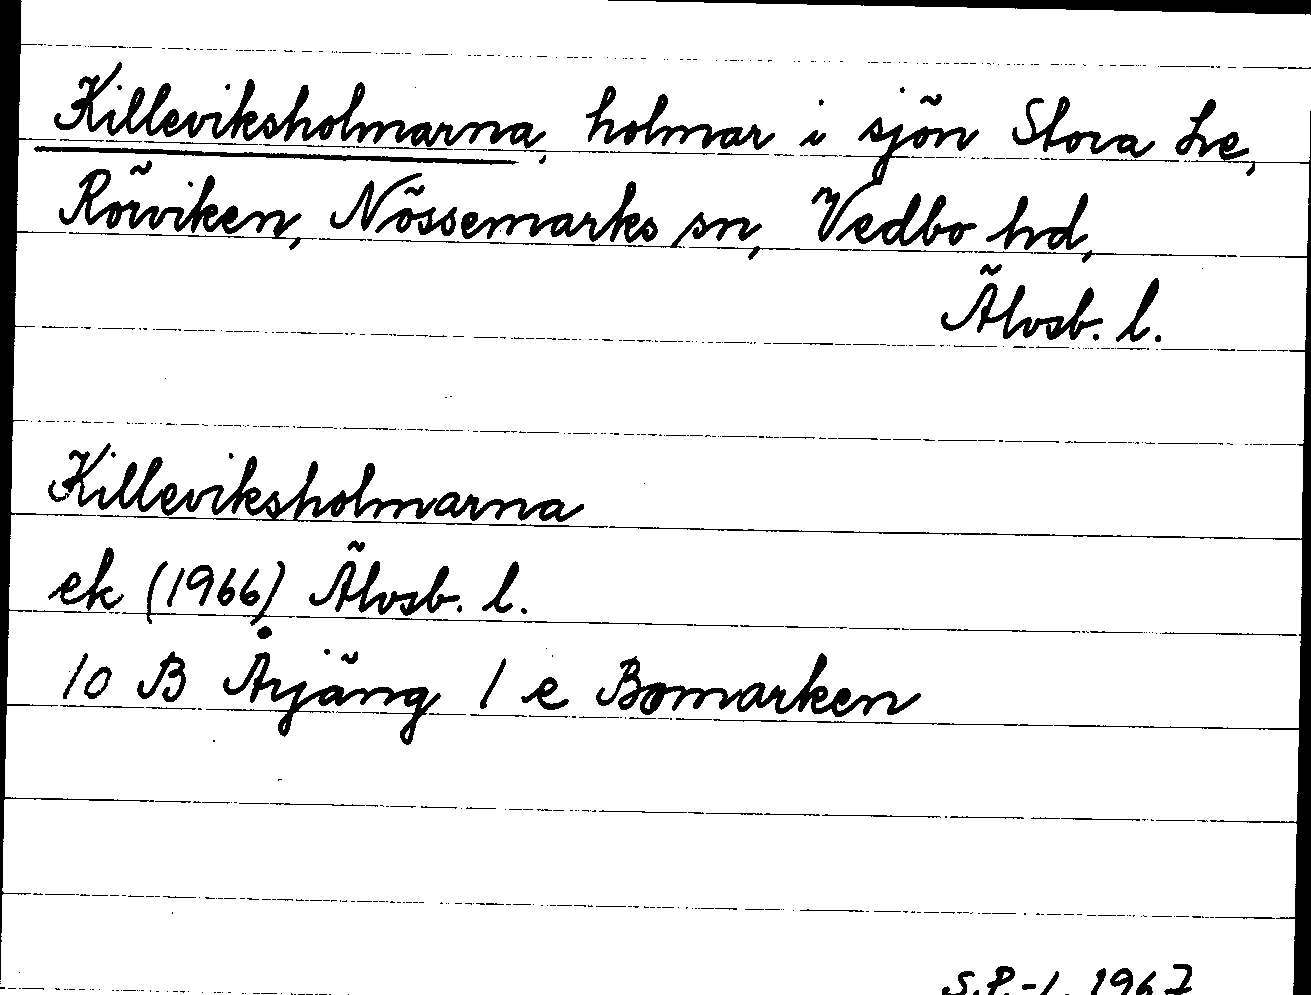 Killeviksholmarna, holmar i sjön Stora Le,
Rörviken, Nössemarks sn, Vedbo hd,
Älvsb. l.
Killeviksholmarna
ek (1966) Älvsb. l.
10 B Årjäng 1 e Bomarken
S.P.-l. 1967